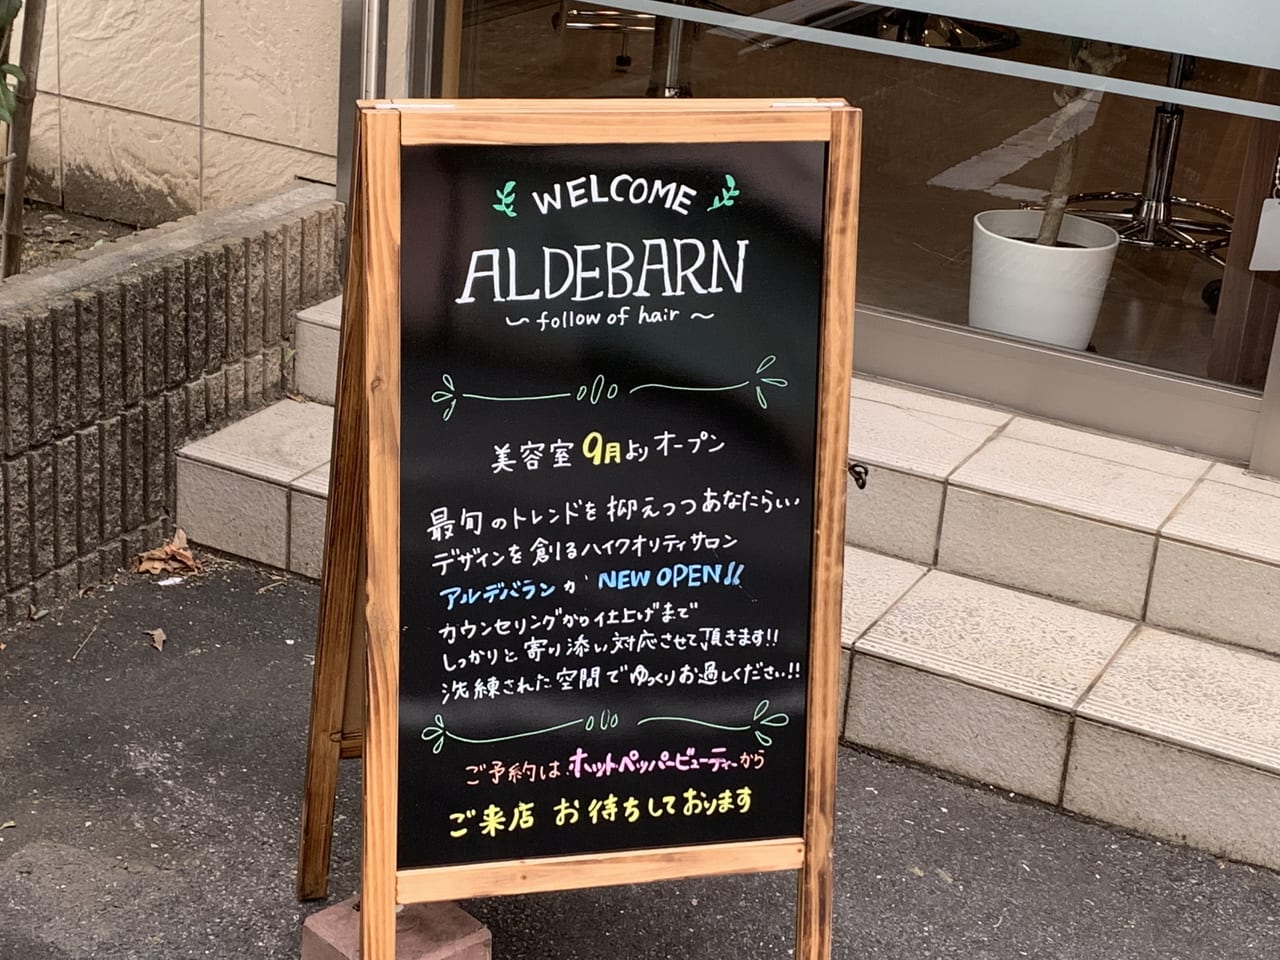 WELCOME
ALDEBARN
〜 follow of hair 〜
美容室 9月よりオープン
最旬のトレンドを抑えつつあなたらしい
デザインを創るハイクオリティサロン
アルデバランが NEW OPEN!!
カウンセリングから仕上げまで
しっかりと寄り添い対応させて頂きます!!
洗練された空間でゆっくりお過しください!!
ご予約はホットペッパービューティーから
ご来店 お待ちしております